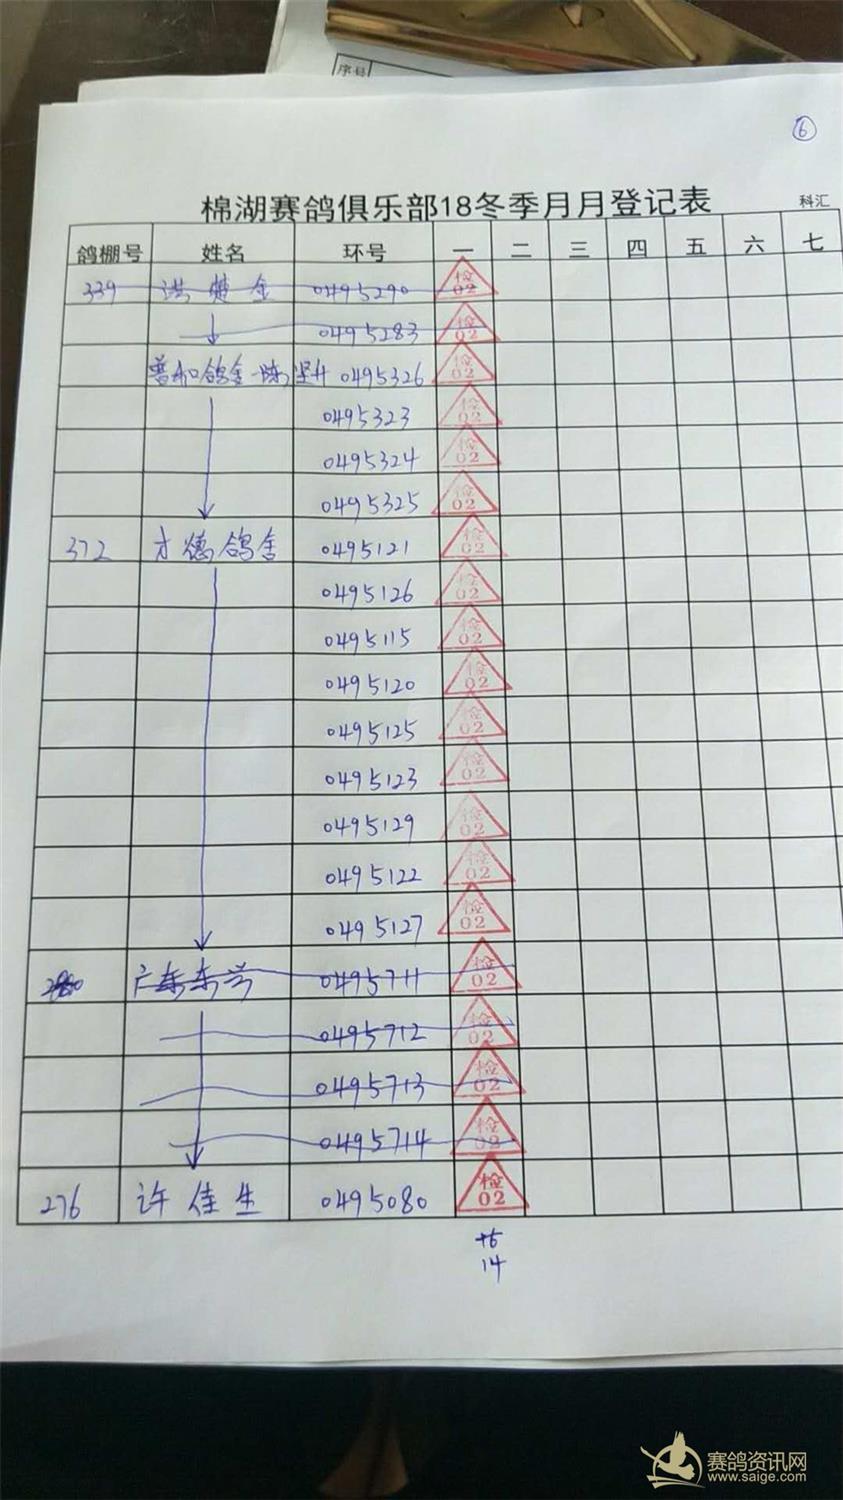 序号
6
棉湖赛鸽俱乐部18冬季月月登记表 科汇
鸽棚号 姓名 环号 一 二 三 四 五 六 七
339 洪 金 0495290 检02
0495283 检02
普和鸽舍-陈坚升 0495326 检02
0495323 检02
0495324 检02
0495325 检02
372 才德鸽舍 0495121 检02
0495126 检02
0495115 检02
0495120 检02
0495125 检02
0495123 检02
0495129 检02
0495122 检02
0495127 检02
广东东号 0495711 检02
0495712 检02
0495713 检02
0495714 检02
276 许佳生 0495080 检02
14
赛鸽资讯网
www.saige.com